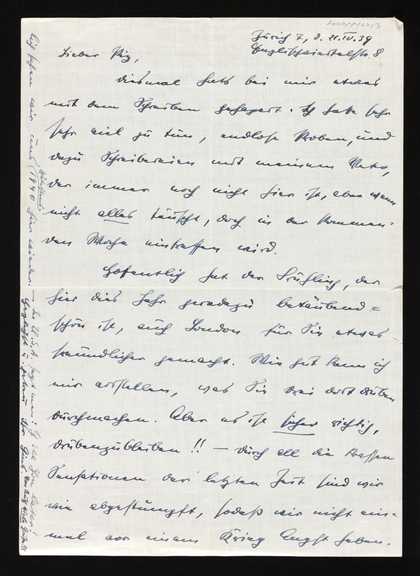 Zürich 7, d. 21.IV.39
Englischviertelstr 8
Lieber
diesmal hats bei mir etwas
mit dem Schreiben gehapert. Ich habe sehr
sehr viel zu tun, endlose Proben, und
dazu Schreibereien mit meinem
der immer noch nicht hier ist, aber wenn
nicht alles täuscht, doch in der kommen-
den Woche eintreffen wird.
Hoffentlich hat der Frühling, der
hier dies Jahr geradezu betäubend =
schön ist, auch London für Sie etwas
freundlicher gemacht. Wie gut kann ich
mir vorstellen, was Sie dort drüben
durchmachen. Aber es ist sicher richtig,
drübenzubleiben!! — durch all die
Sensationen der letzten Zeit sind wir
wie abgestumpft, sodass wir nicht ein-
mal vor einem Krieg Angst haben.